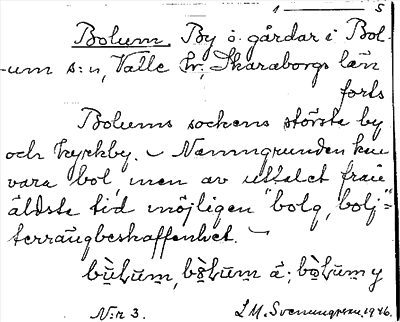 1 — 5
Bolum. By o. gårdar i Bol-
-um s:n, Valle hr. Skaraborgs län
forts
Bolums sockens största by
och kyrkby. – Namngrunden kan
vara bol, men av uttalet från
äldsta tid möjligen "bolg, bolj"=
terrängbeskaffenhet. –
y
N:r 3. L. M. Svenungsson. 1946.